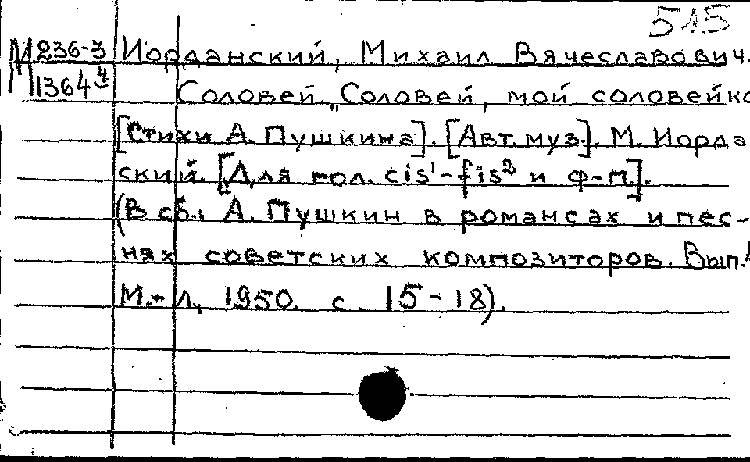 515
М236-3 Иорданский, Михаил Вячеславович.
М1364⁴ Соловей „Соловей, мой соловейко
[Стихи А. Пушкина]. [Авт. муз.]. М. Иорда
ский. [Для гол. cis¹-fis² и ф-п.].
(В сб.: А. Пушкин в романсах и пес-
нях советских композиторов. Вып.
М.-Л., 1950. с. 15-18).